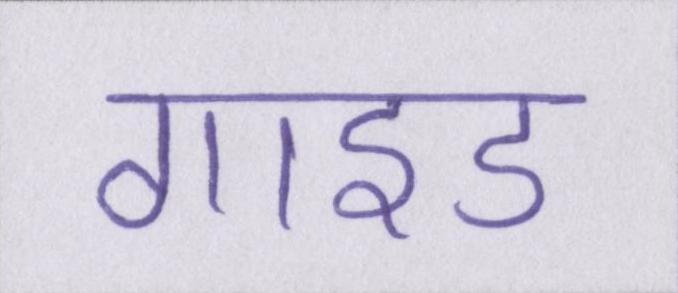 गाइड